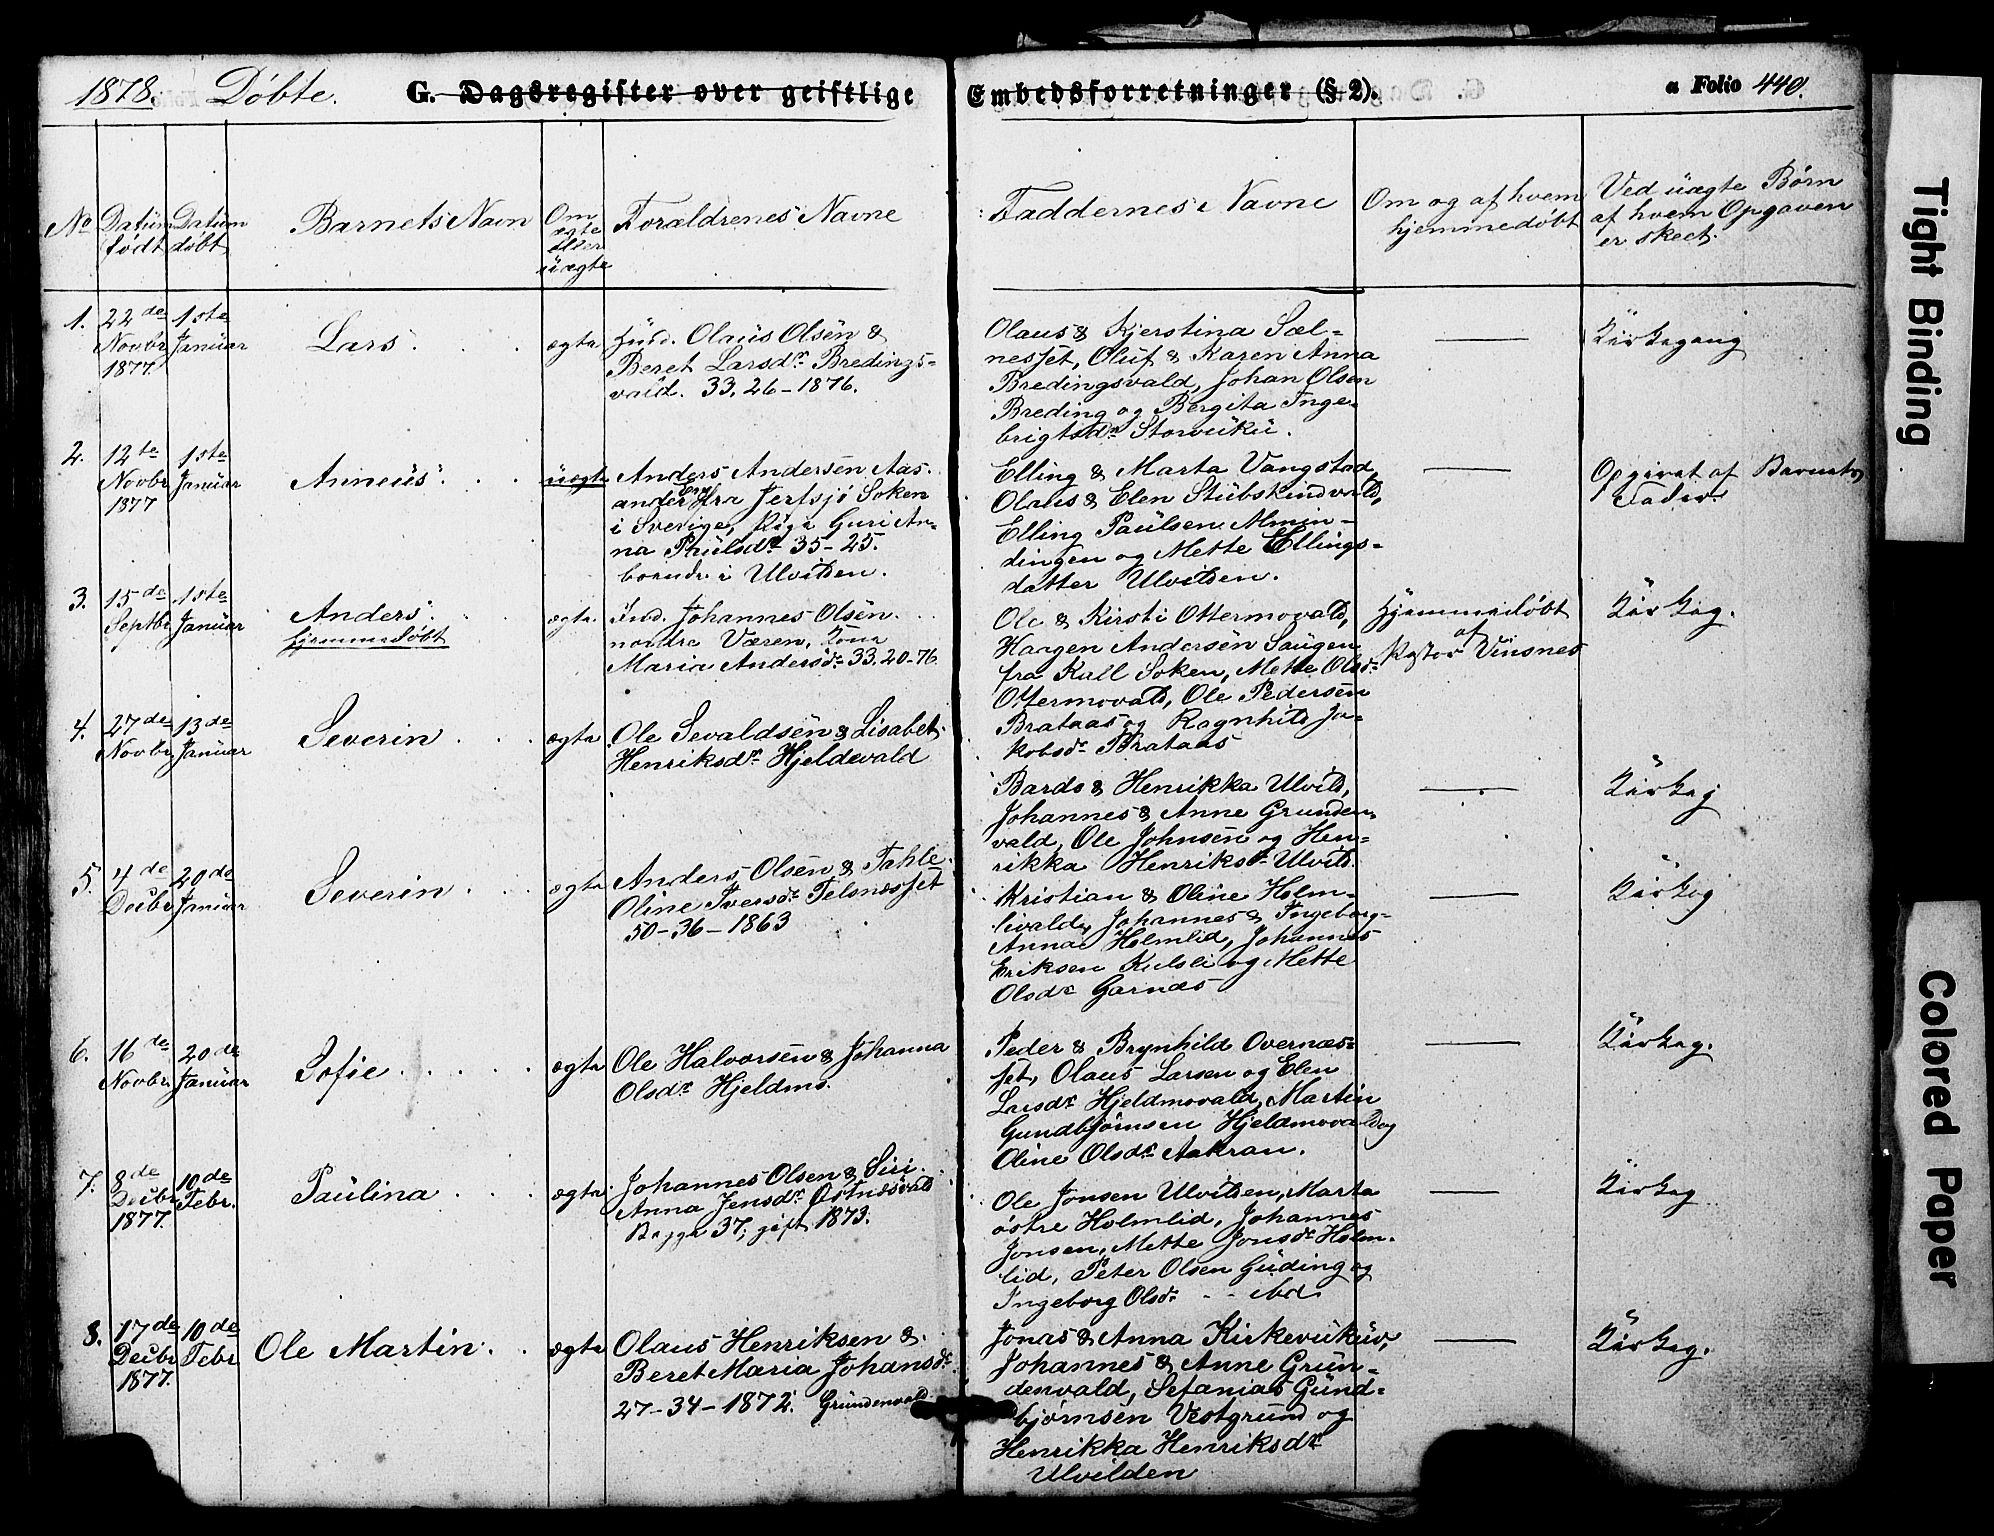 1878. Döbte. G. Dagsregister over geistlige Embedsforretninger (§ 2). a Folio 440.
No
Datüm født
Datum døbt
Barnets Navn
Om ægte eller uægte
Forældrenes Navne
Faddernes Navne
Om og af hvem hjemmedøbt
Ved üægte Børn af hvem Opgaven er skeet.
1. 22de Novbr 1877. 1ste Janüar
Lars.
ægte
Olaüs Olsen &
Beret Larsdr. Bredings-
vald. 33. 26 - 1876.
Olaus & Kjerstina Sæl-
nesset, Oluf & Karen Anna
Bredingsvald, Johan Olsen
Breding og Bergita Inge-
brigtsdr.
Kirkegang
2. 12te Novbr 1877 1ste Janüar
Anneüs.
üægte
Anders Andersen Aas-
ander fra Jerfsjö Soken
i Sverige, Pige Guri An-
na Paulsdr. 35 - 25.
boende i Ulvilden.
Elling & Marta Vangstad,
Olaus & Elen Stubskindvald,
Elling Paülsen Almin-
dingen og Mette Ellings-
datter Ulvilden.
Opgivet af Barnets
Fader
3. 15de Septbr 1ste Janüar
Anders.
hjemmedøbt
ægte
Ind. Johannes Olsen
nordre Væren, Kone
Maria Andersdr. 33. 20 - 76.
Ole & Kirsti Ottermovald,
Haagen Andersen Saugen
fra Kall Soken, Mette Olsdr.
Ottermovald, Ole Pedersen
Brataas og Ragnhild Ja-
kobsdr. Brataas
Hjemmedøbt
af
Pastor Vinsnes
Kirkeg.
4. 27de Novbr 13de Janüar
Severin
ægte
Ole Sevaldsen & Lisabet
Henriksdr. Hjeldevald
Bardo & Henrikka Ulvild,
Johannes & Anne Grunden-
vald, Ole Johnsen og Hen-
rikka Henriksdr. Ulvild.
Kirkeg
5. 4de Decbr 20de Janüar
Severin
ægte
Anders Olsen & Tahle-
Oline Iversdr. Telsnesset
50 - 36 - 1863
Kristian & Oline Holm-
livald, Johannes & Ingeborg-
Anna Holmlid, Johannes
Eriksen Kulsli og Mette
Olsdr. Garnæs
Kirkeg
6. 16de Novbr. 20de Janüar
Sofie
ægte
Ole Halvorsen & Johanna
Olsdr. Hjeldmo.
Peder & Brynhild Overnæs-
set, Olaus Larsen og Elen
Larsdr. Hjeldmovald, Martin
Gundbjørnsen Hjeldmovald og
Oline Olsdr. Aakran.
Kirkeg.
7. 8de Decbr 1877. 10de Febr.
Paülina
ægte
Johannes Olsen & Siri
Anna Jensdr. Östnesvald
Begge 37, gift 1873.
Ole Jonsen Ulvilden, Marta
østre Holmlid, Johannes
Jonsen, Mette Jonsdr. Holm-
lid, Peter Olsen Güding og
Ingeborg Olsdr. - - ibd.
Kirkeg
8. 17de Decbr 1877. 10de Febr
Ole Martin.
ægte
Olaus Henriksen &
Beret Maria Johansdr.
27 - 34 - 1872. Grundenvald
Jonas & Anna
Johannes & Anne Grün-
denvald, Sefanias Günd-
bjørnsen Vestgrund og
Henrikka Henriksdr.
Ulvilden
Kirkeg.
Tight Binding
Colored Paper